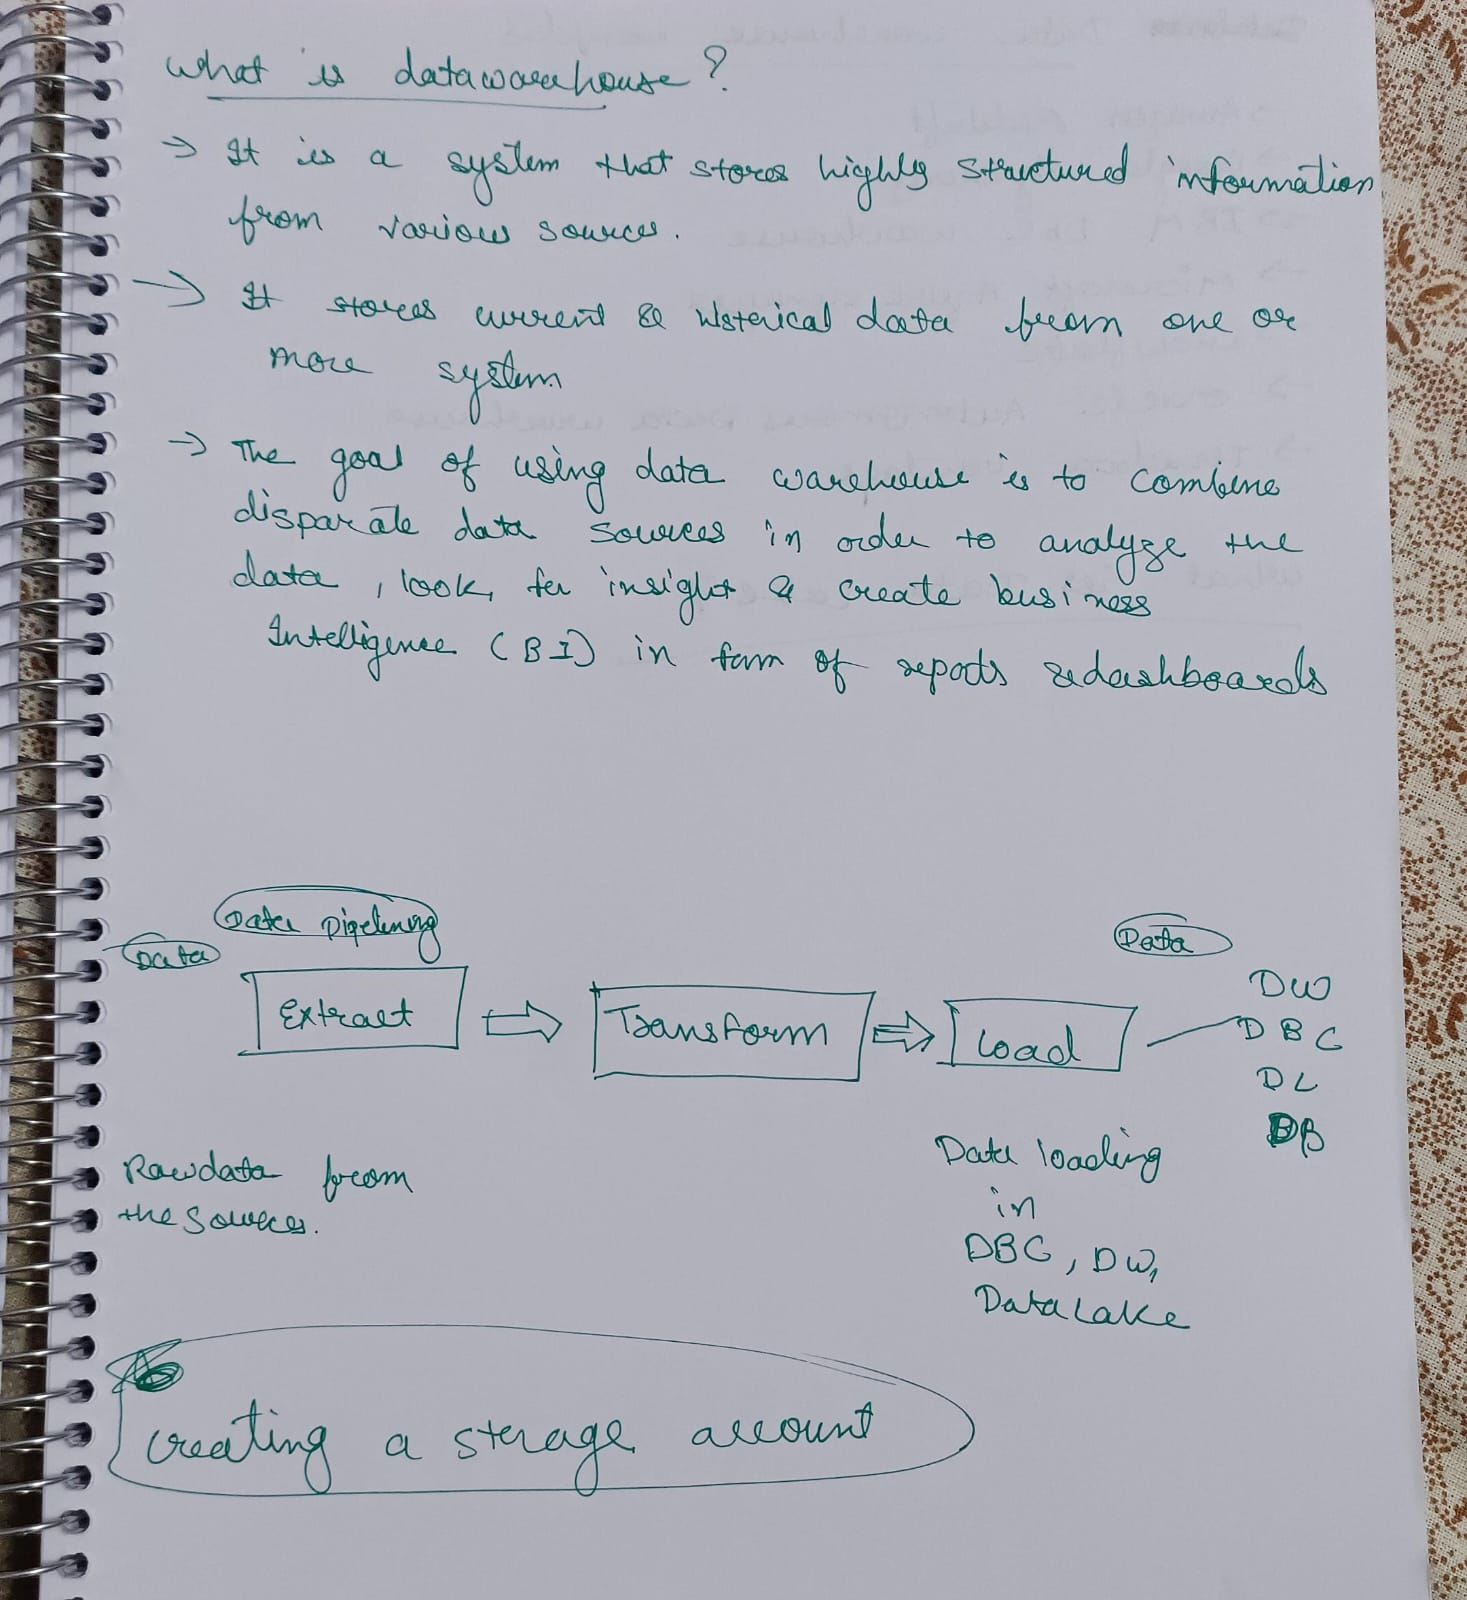 What is datawarehouse?
→ It is a system that stores highly structured information
from various sources.
→ It stores current & historical data from one or
more system
→ The goal of using data warehouse is to combine
disparate data sources in order to analyze the
data, look for insight & create business
Intelligence (BI) in form of reports & dashboards
Data pipelining
Data
Data
Extract
Transform
Load
DW
DBC
DL
DB
Raw data from
the sources.
Data loading
in
DBC, DW,
Data Lake
creating a storage account